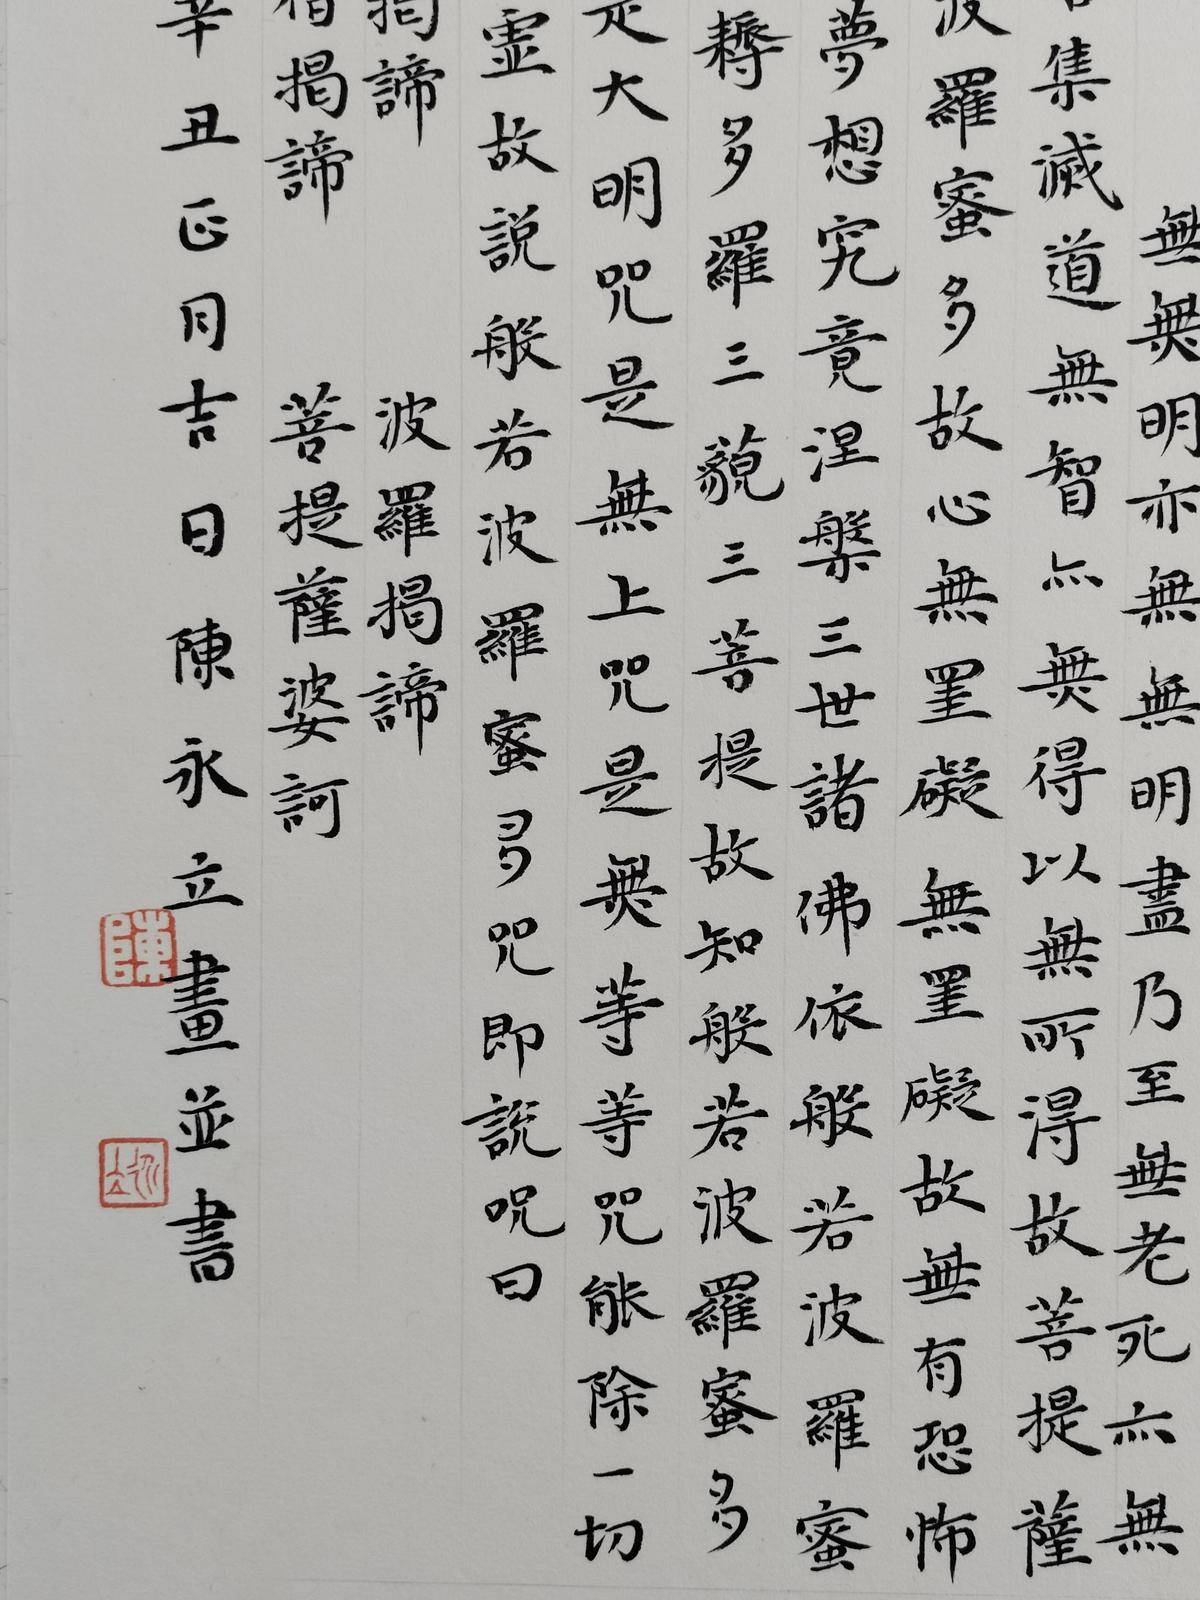 無無明亦無無明盡乃至無老死亦無
集滅道無智亦無得以無所得故菩提薩
波羅蜜多故心無罣礙無罣礙故無有恐怖
夢想究竟涅槃三世諸佛依般若波羅蜜
耨多羅三藐三菩提故知般若波羅蜜多
是大明咒是無上咒是無等等咒能除一切
虛故説般若波羅蜜多咒即説呪曰
揭諦 波羅揭諦
僧揭諦 菩提薩婆訶
辛丑正月吉日陳永立畫並書
陳